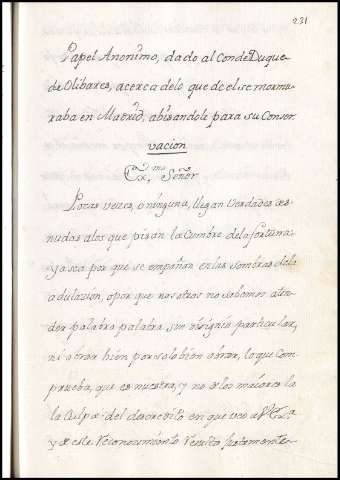 231
Papel Anonimo, dado al Conde Duque
de Olibares, acerca delo que de el se mormu-
raba en Matrid, abisandole para su Conser
vacion
Ex.mo Señor
Pocas vezes, o ninguna, llegan Verdades des
nudas alos que pisan la Cumbre dela fortuna
ya sea por que se empañan en las sombras dela
adulazion, o por que nosotros no sabemos aten-
der palabra palabra, sin designio particular,
ni obrar bien por solo bien obrar, lo que Com
prueba, que es nuestra, y no delos maiores la
la Culpa: del descredito en que veo a V.Ex.a
y de este reconozimiento resulta patente